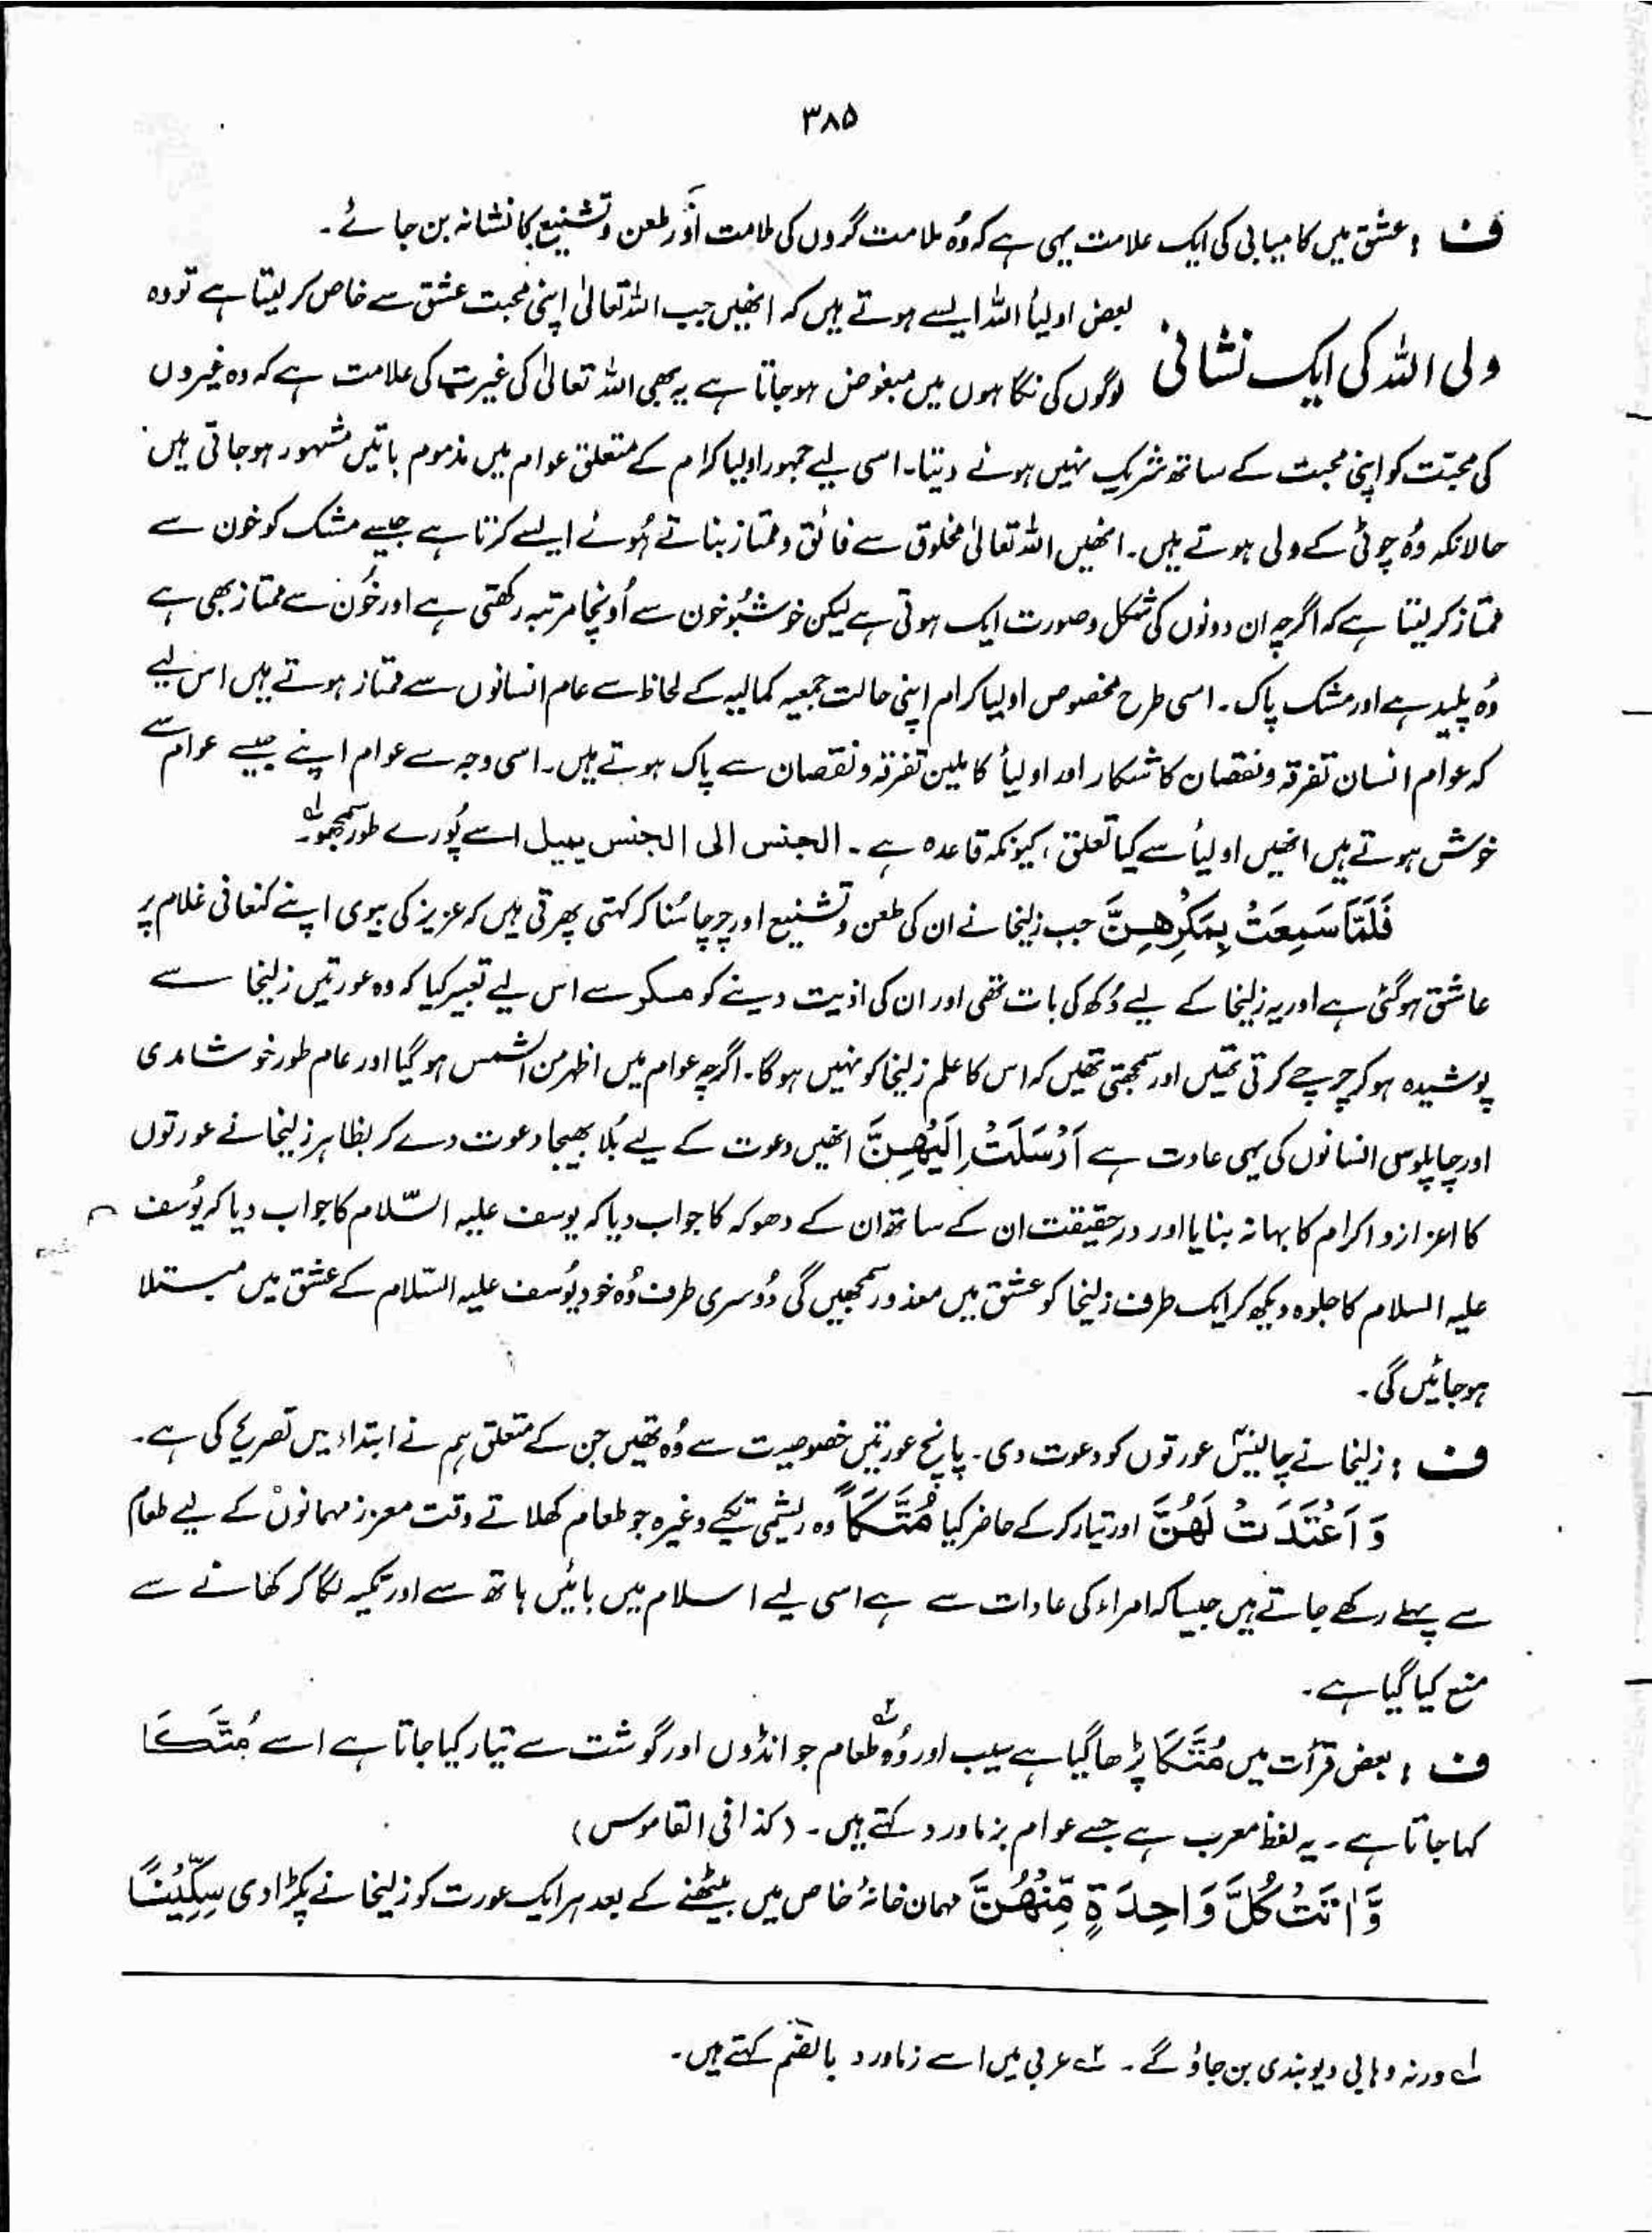 ۳۸۵
ف : عشق میں کامیابی کی ایک علامت یہی ہے کہ وُہ ملامت گروں کی ملامت اور طعن و تشنیع کا نشانہ بن جائے۔
ولی اللہ کی ایک نشانی
بعض اولیأ اللہ ایسے ہوتے ہیں کہ انھیں جب اللہ تعالیٰ اپنی محبت عشق سے خاص کر لیتا ہے تو وہ
لوگوں کی نگاہوں میں مبغوض ہو جاتا ہے یہ بھی اللہ تعالیٰ کی غیرت کی علامت ہے کہ وہ غیروں
کی محبّت کو اپنی محبت کے ساتھ شریک نہیں ہونے دیتا۔ اسی لیے جمہور اولیا کرام کے متعلق عوام میں مذموم باتیں مشہور ہو جاتی ہیں
حالانکہ وُہ چوٹی کے ولی ہوتے ہیں۔ انھیں اللہ تعالیٰ مخلوق سے فائق و ممتاز بناتے ہُوئے ایسے کرتا ہے جیسے مشک کو خون سے
ممتاز کر لیتا ہے کہ اگرچہ ان دونوں کی شکل و صورت ایک ہوتی ہے لیکن خوشبُو خون سے اُونچا مرتبہ رکھتی ہے اور خُون سے ممتاز بھی ہے
وُہ پلید ہے اور مشک پاک۔ اسی طرح مخصوص اولیا کرام اپنی حالت جمعیہ کمالیہ کے لحاظ سے عام انسانوں سے ممتاز ہوتے ہیں اس لیے
کہ عوام انسان تفرقہ و نقصان کا شکار اور اولیأ کاملین تفرقہ و نقصان سے پاک ہوتے ہیں۔ اسی وجہ سے عوام اپنے جیسے عوام سے
خوش ہوتے ہیں انھیں اولیأ سے کیا تعلق، کیونکہ قاعدہ ہے۔ الجنس الی الجنس یمیل اسے پُورے طور سمجھو۔ لہ
فَلَمَّا سَمِعَتْ بِمَكْرِهِنَّ جب زلیخا نے ان کی طعن و تشنیع اور چرچا سُنا کر کہتی پھرتی ہیں کہ عزیز کی بیوی اپنے کنعانی غلام پر
عاشق ہو گئی ہے اور یہ زلیخا کے لیے دُکھ کی بات تھی اور ان کی اذیت دینے کو مکر سے اس لیے تعبیر کیا کہ وہ عورتیں زلیخا سے
پوشیدہ ہو کر چرچے کرتی تھیں اور سمجھتی تھیں کہ اس کا علم زلیخا کو نہیں ہوگا۔ اگرچہ عوام میں اظہر من الشمس ہو گیا اور عام طور خوشامدی
اور چاپلوس انسانوں کی یہی عادت ہے اَرْسَلَتْ اِلَيْهِنَّ انھیں دعوت کے لیے بُلا بھیجا دعوت دے کر بظاہر زلیخا نے عورتوں
کا اعزاز و اکرام کا بہانہ بنایا اور درحقیقت ان کے ساتھ ان کے دھوکہ کا جواب دیا کہ یوسف علیہ السّلام کا جواب دیا کہ یُوسف
علیہ السلام کا جلوہ دیکھ کر ایک طرف زلیخا کو عشق میں معذور سمجھیں گی دُوسری طرف وُہ خود یُوسف علیہ السّلام کے عشق میں مبتلا
ہو جائیں گی۔
ف : زلیخا نے چالیس عورتوں کو دعوت دی۔ پانچ عورتیں خصوصیت سے وُہ تھیں جن کے متعلق ہم نے ابتداء میں تصریح کی ہے۔
وَ اَعْتَدَتْ لَهُنَّ اور تیار کر کے حاضر کیا مُتَّكَاً وہ ریشمی تکیے وغیرہ جو طعام کھلاتے وقت معزز مہمانوں کے لیے طعام
سے پہلے رکھے جاتے ہیں جیسا کہ امراء کی عادات سے ہے اسی لیے اسلام میں بائیں ہاتھ سے اور تکیہ لگا کر کھانے سے
منع کیا گیا ہے۔
ف : بعض قرأت میں مُتَّكَا پڑھا گیا ہے سیب اور وُہ ۲ طعام جو انڈوں اور گوشت سے تیار کیا جاتا ہے اسے مُتَّكَا
کہا جاتا ہے۔ یہ لفظ معرب ہے جسے عوام بزماورد کہتے ہیں۔ (کذا فی القاموس)
وَّاٰتَتْ كُلَّ وَاحِدَةٍ مِّنْهُنَّ مہمان خانۂ خاص میں بیٹھنے کے بعد ہر ایک عورت کو زلیخا نے پکڑا دی سِكِّيْنًا
لہ ورنہ وہابی دیوبندی بن جاؤ گے۔ ۲ے عربی میں اسے زماورد بالضم کہتے ہیں۔